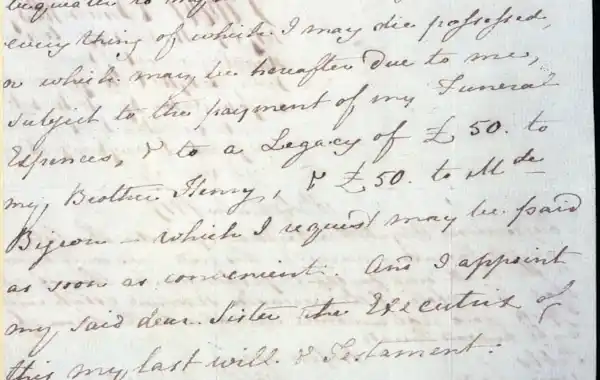 bequeath to my
every thing of which I may die possessed,
or which may be hereafter due to me,
subject to the payment of my Funeral
Expences, & to a Legacy of £50. to
my Brother Henry, & £50. to M de
Bigeon — which I request may be paid
as soon as convenient. And I appoint
my said dear Sister the Executrix of
this my last will & Testament.